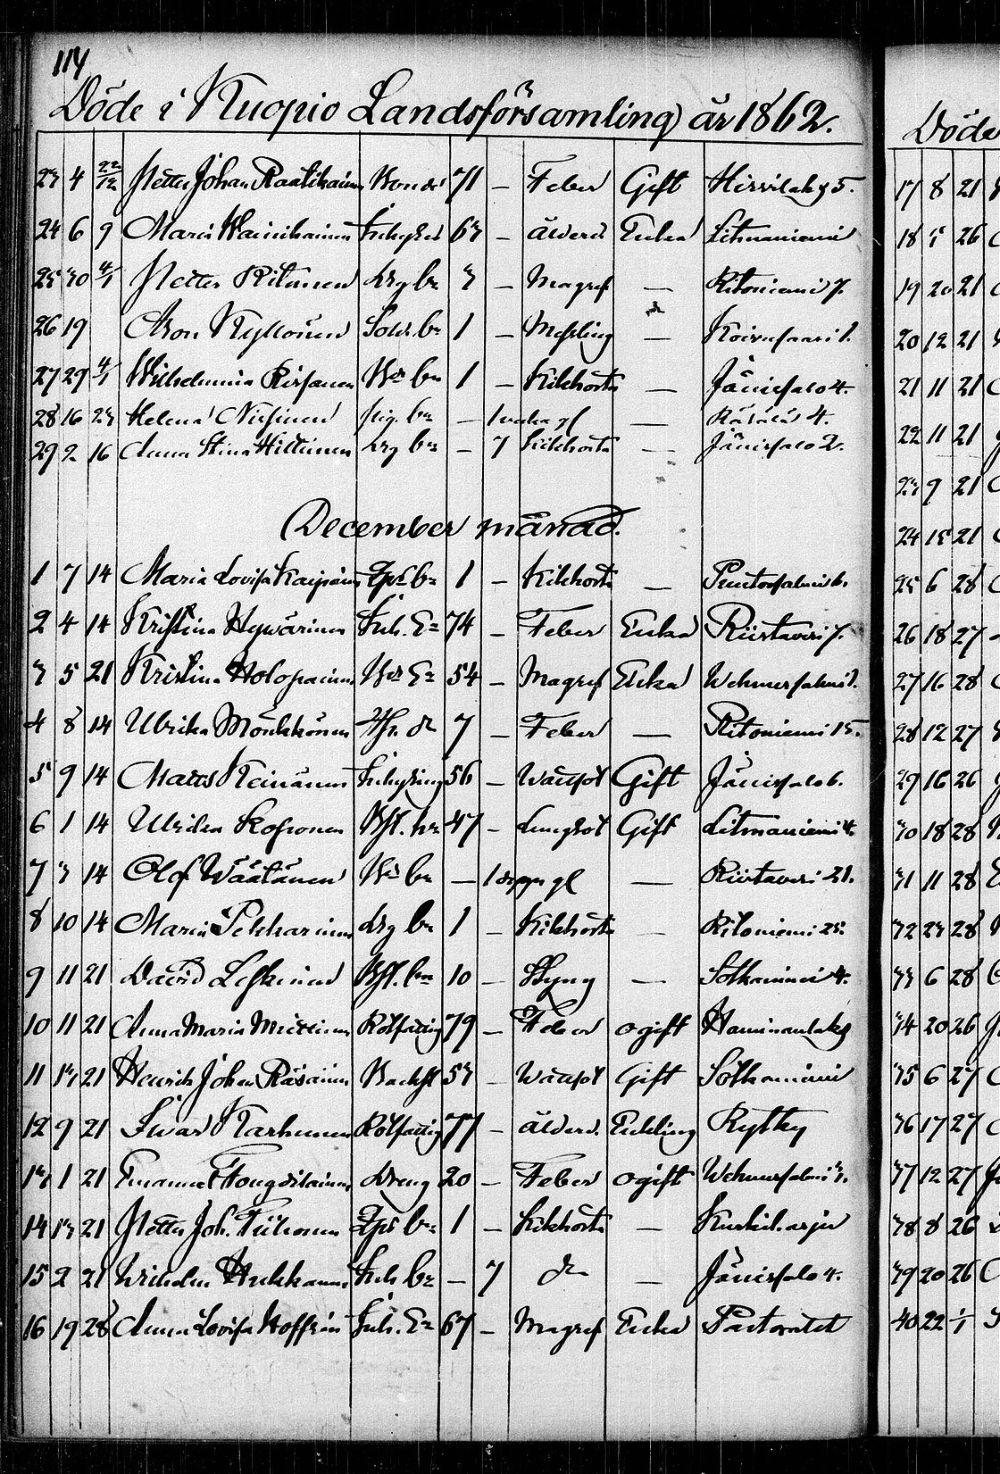 114
Döde i Kuopio Landsförsamling år 1862.
23 4 22/12 Petter Johan Raatikain Bonde 71 — Feber Gift Hirvilaks 5.
24 6 9 Maria Wainikainen Inhyses 63 — ålderd Enka Litmaniemi
25 30 4/1 Petter Ritonen drg bn 3 — Magref — Ritoniemi 7.
26 19 Aron Kyllönen Sold. bn 1 — Meßling — Koivusaari 1.
27 29 4/1 Wilhelmina Bn 1 — Kikhosta — Jänissalo 4.
28 16 23 Helena Niskinen pig. bn — 1 vecka gl — Räsälä 4.
29 2 16 Anna Stina Hiltunen drg bn — 7 Kikhosta — Jänissalo 2.
December månad.
1 7 14 Maria Lovisa bn 1 — Kikhosta —
2 4 14 Kristina Hyvärinen Inh. Ea 74 — Feber Enka Riistavesi 7.
3 5 21 Kristina Holopainen Ea 54 — Magref Enka Wehmersalmi 1.
4 8 14 Ulrika Mönkkönen do 7 — Feber — Ritoniemi 15.
5 9 14 Matts Keinänen Inhysing 56 — Wattsot Gift Jänissalo 6.
6 1 14 Ulrika Kosonen Bst. hu 47 — Lungsot Gift Litmaniemi 4.
7 3 14 Olof Wäätänen bn — 1 gl — Riistavesi 21.
8 10 14 Maria Pekkarinen drg bn 1 — Kikhosta — Ritoniemi 25.
9 11 21 David Leskinen Bst. bn 10 — Styng — Sotkaniemi 4.
10 11 21 Anna Maria Miettinen Rotfattig 79 — Feber ogift Haminanlaks
11 13 21 Henrich Johan Räsänen Backst 53 — Wattsot Gift Sotkaniemi
12 9 21 Ivar Karhunen Rotfattig 77 — ålderd. Enkling Rytky
13 1 21 Emanuel dreng 20 — Feber ogift Wehmersalmi 3.
14 13 21 Petter Joh. bn 1 — Kikhosta — Kurkiharju
15 2 21 Wilhelm Hukkanen Inh bn — 7 do — Jänissalo 4.
16 19 28 Anna Lovisa Hoffrén Inh. Ea 67 — Magref Enka Pastoratet
Döde
17 8 21
18 5 26
19 20 21
20 12 21
21 11 21
22 11 21
23 9 21
24 15 21
25 6 28
26 18 27
27 16 28
28 12 27
29 16 26
30 18 28
31 11 28
32 23 28
33 6 28
34 20 26
35 6 27
36 17 27
37 12 27
38 8 26
39 20 26
40 22 1/1